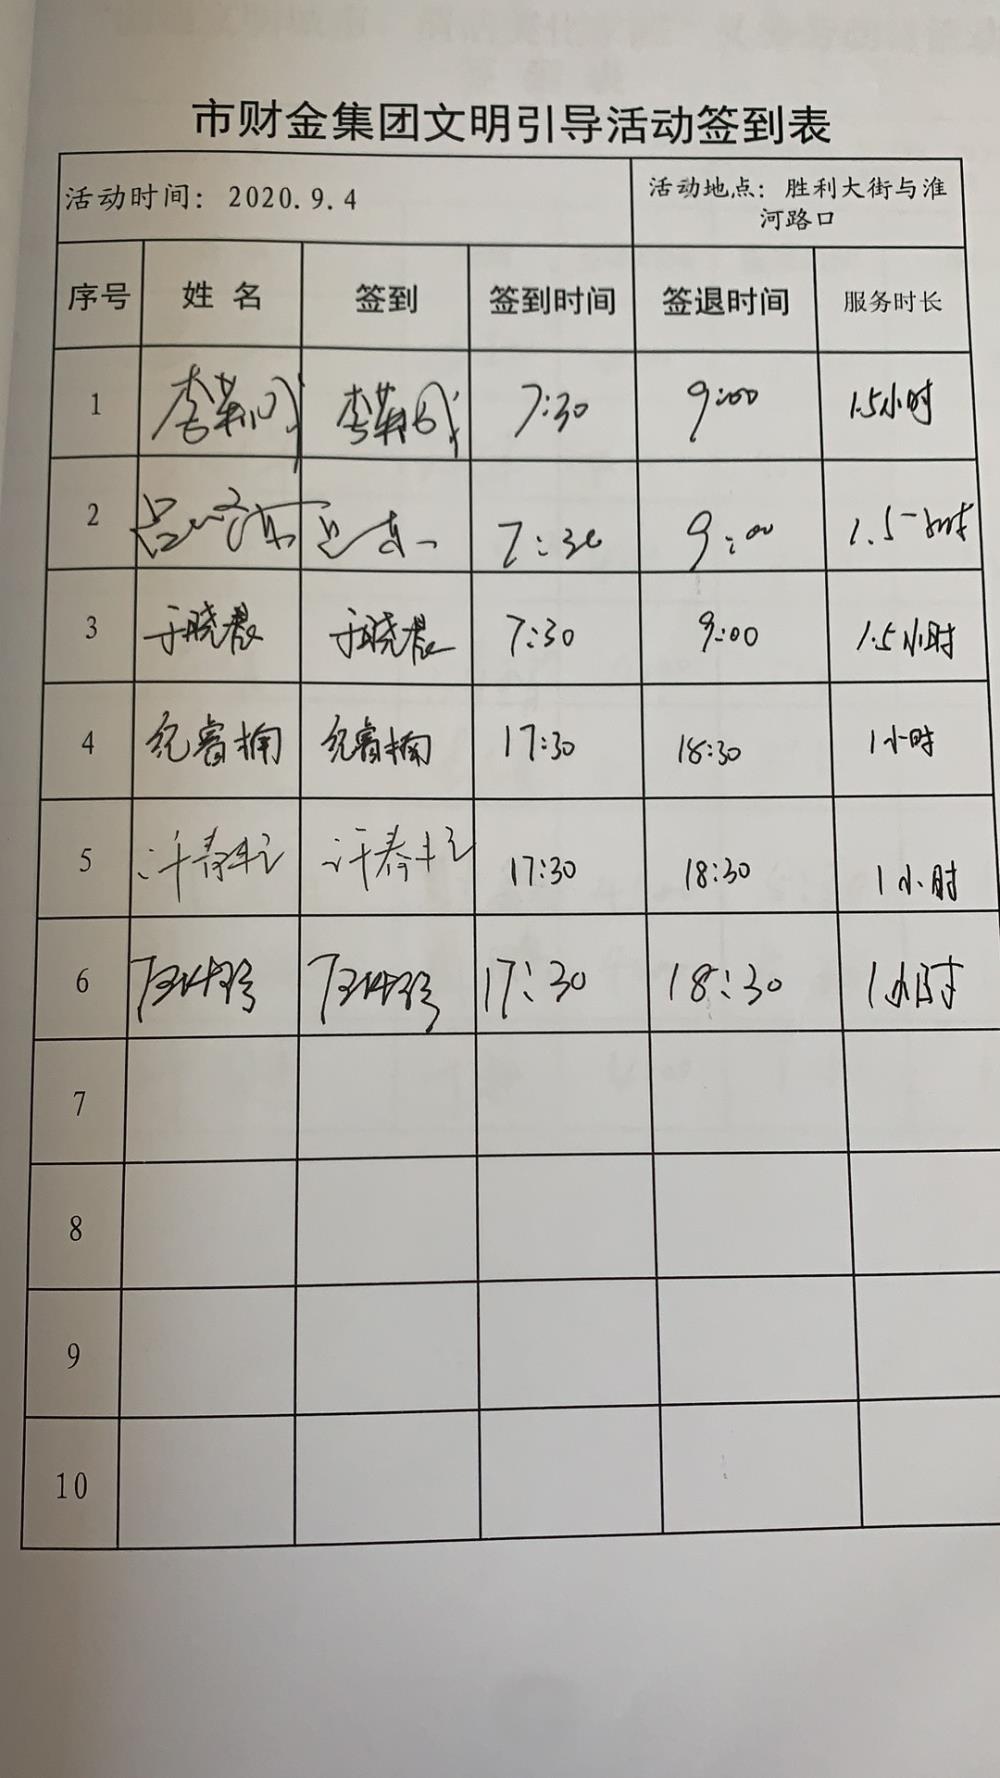 市财金集团文明引导活动签到表
活动时间：2020.9.4
活动地点：胜利大街与淮
河路口
序号 姓 名 签到 签到时间 签退时间 服务时长
1 7:30 9:00 1.5小时
2 7:30 9:00 1.5小时
3 于晓晨 于晓晨 7:30 9:00 1.5小时
4 纪睿楠 纪睿楠 17:30 18:30 1小时
5 17:30 18:30 1小时
6 17:30 18:30 1小时
7
8
9
10